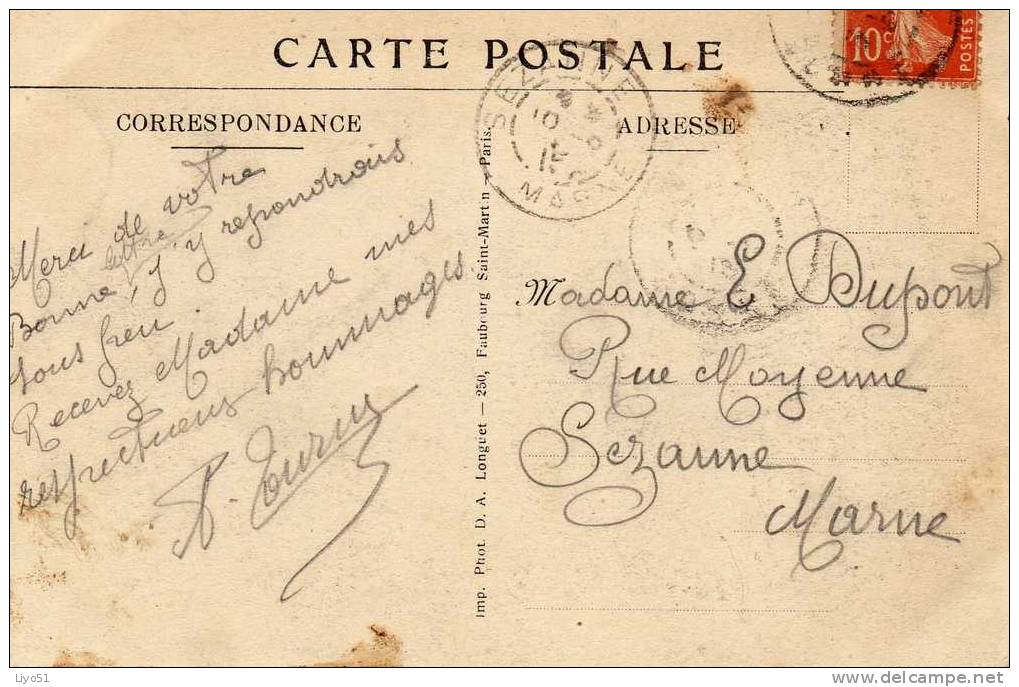 CARTE POSTALE
CORRESPONDANCE
ADRESSE
10c
POSTES
SEZANNE
MARNE
Merci de votre
Bonne lettre, j'y repondrais
sous peu.
Recevez Madame mes
respectueux hommages.
Madame E Dupont
Rue Moyenne
Sezanne
Marne
Imp. Phot. D. A. Longuet — 250, Faubourg Saint-Martin — Paris.
Liyo51
www.delcampe.net